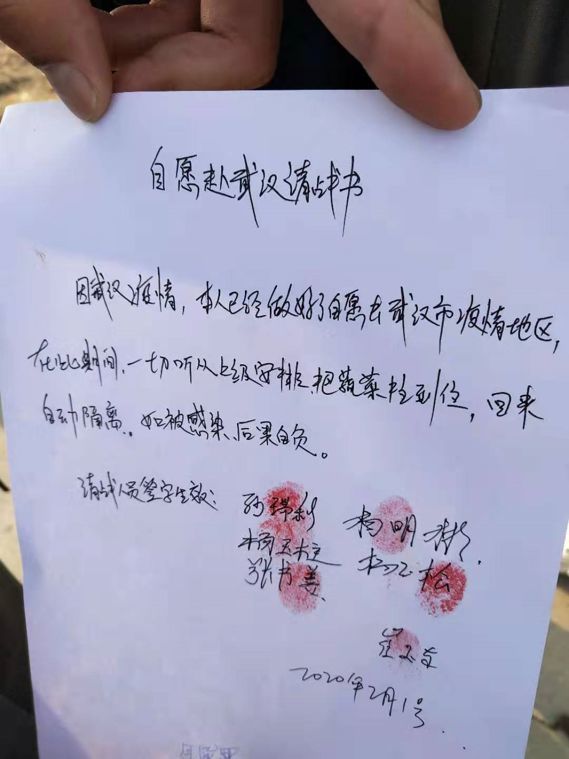 自愿赴武汉请战书
因武汉疫情，本人已经做好了自愿去武汉市疫情地区，
在此期间，一切听从上级安排，把蔬菜拉到位，回来
自动隔离。如被感染后果自负。
请战人员签字生效：
杨明彬
杨玉松
2020年2月1号